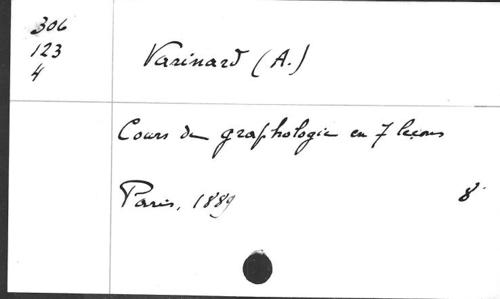 306
123
4
Varinard (A.)
Cours de graphologie en 7 leçons
Paris, 1889 8°